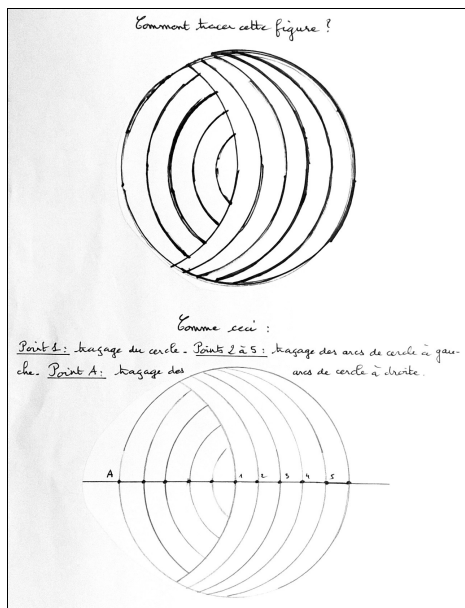 Comment tracer cette figure ?
Comme ceci :
Point 1 : traçage du cercle - Points 2 à 5 : traçage des arcs de cercle à gau-
che - Point A : traçage des arcs de cercle à droite.
A 1 2 3 4 5